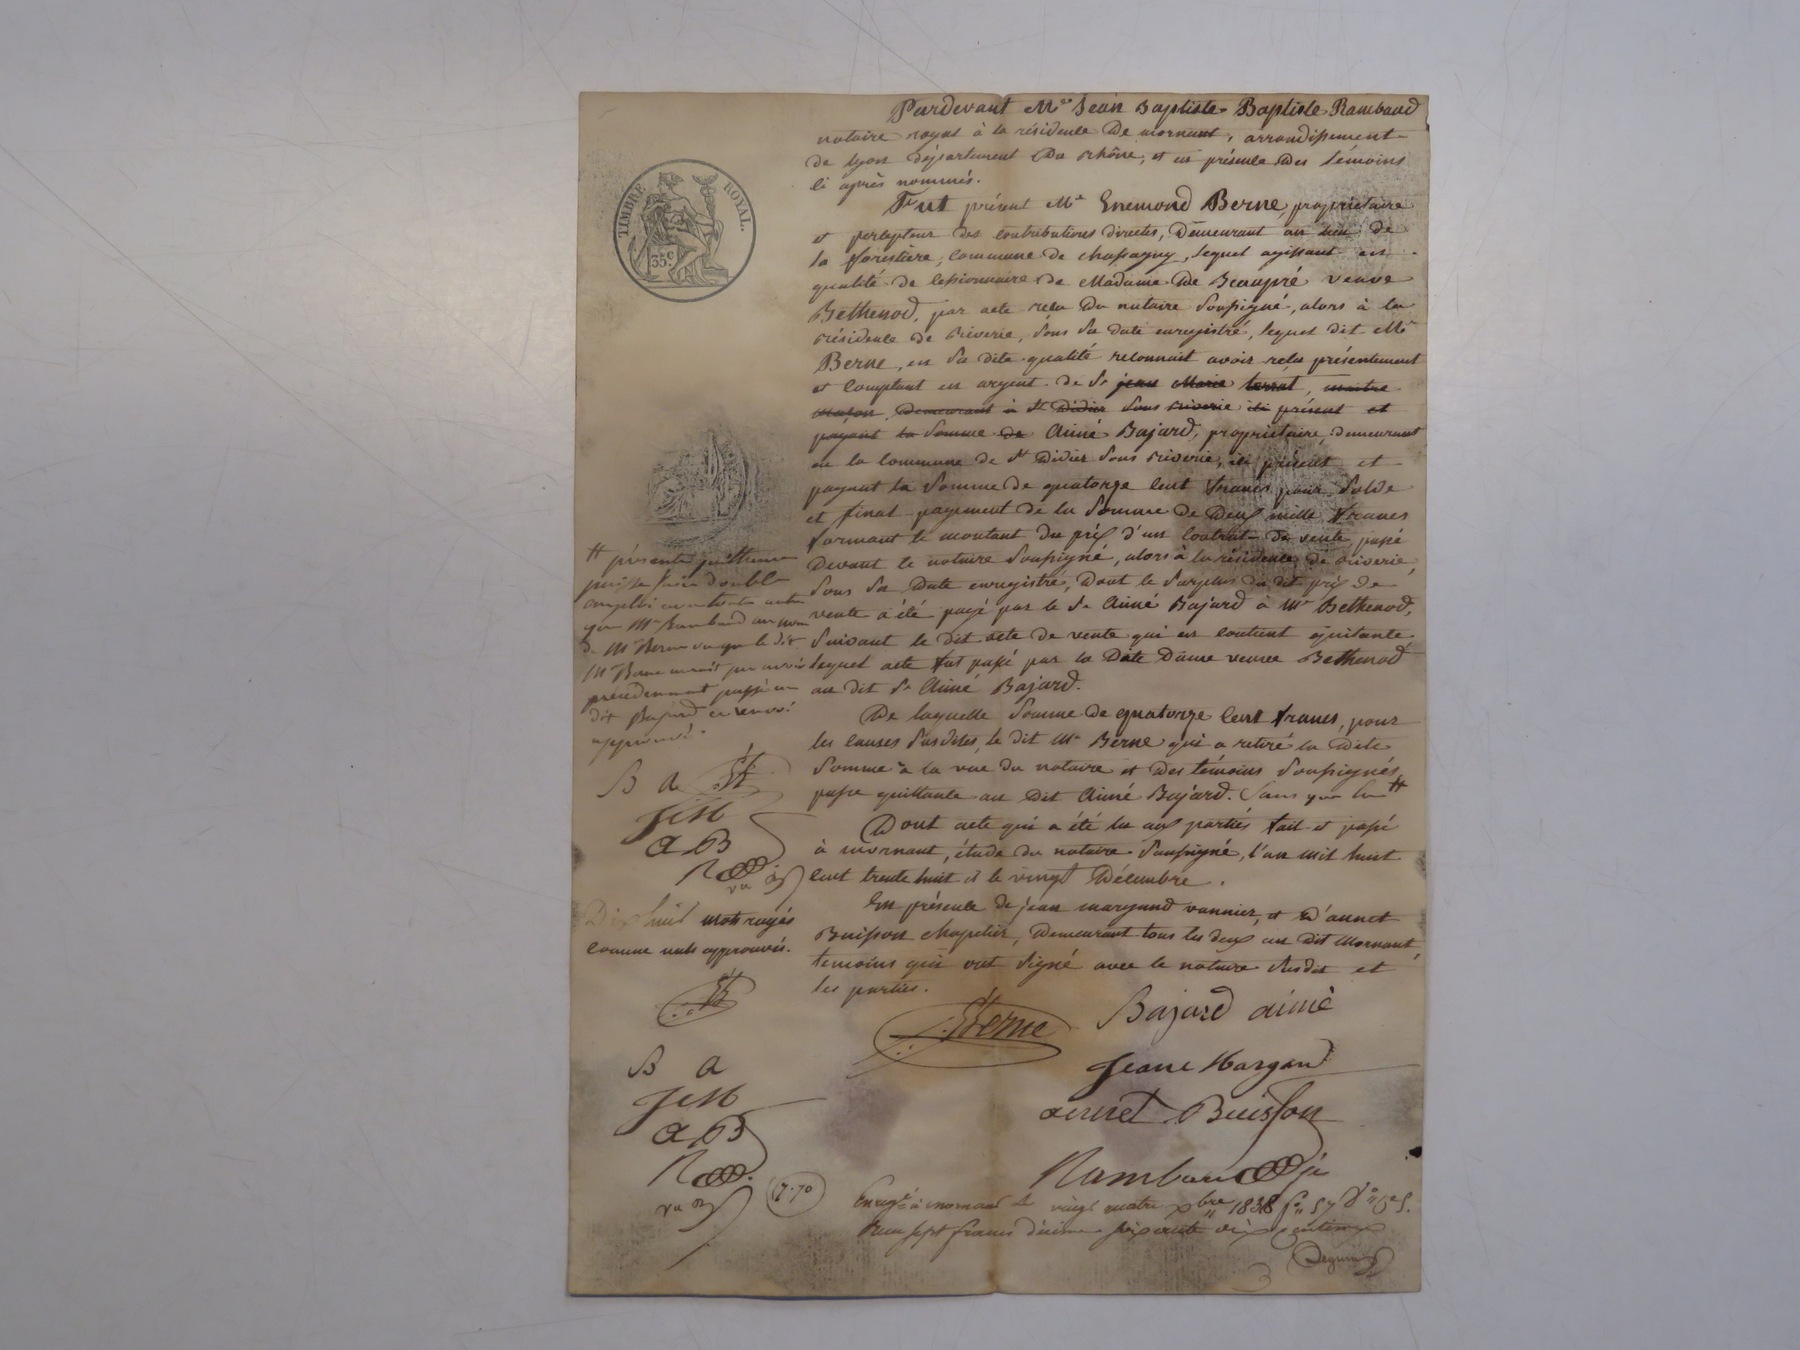 TIMBRE ROYAL.
35.c
Pardevant Me Jean Baptiste Baptiste Rambaud
notaire royal à la résidence de mornant, arrondissement
de lyon département du rhône, et en présence des témoins
ci après nommés.
Fut présent Mr Enemond Berne, propriétaire
et percepteur des contributions directes, demeurant au lieu de
la forestière, commune de chassagny, lequel agissant en
qualité de cessionnaire de Madame de Beaupré veuve
Bethenod, par acte reçu du notaire soussigné, alors à la
résidence de riverie, sous sa date enregistré, lequel dit Mr
Berne, en sa dite qualité reconnait avoir reçu présentement
et comptant en argent de Sr jean Marie terrat, maitre
maçon, demeurant à St Didier sous riverie ici présent et
payant la somme de Aimé Bajard, propriétaire, demeurant
en la commune de St Didier sous riverie, ici présent et
payant la somme de quatorze cent francs pour solde
et final payement de la somme de deux mille francs
formant le montant du prix d'un contrat de vente, passé
devant le notaire soussigné, alors à la résidence de riverie,
sous sa date enregistré, dont le surplus du dit prix de
vente a été payé par le Sr Aimé Bajard à Me Bethenod,
suivant le dit acte de vente qui en contient quitance,
lequel acte fut passé par la dite dame veuve Bethenod
au dit Sr Aimé Bajard.
De laquelle somme de quatorze cent francs, pour
les causes susdites, le dit Mr Berne qui a retiré la dite
somme à la vue du notaire et des témoins soussignés,
passe quittance au dit Aimé Bajard. Sans que la #
Dont acte qui a été lu aux parties fait et passé
à mornant, étude du notaire soussigné, l'an mil huit
cent trente huit et le vingt Décembre.
En présence de jean margand vannier, et d'annet
Buisson chapelier, demeurant tous les deux au dit Mornant,
temoins qui ont signé avec le notaire susdit et
les parties.
# présente quittance
puisse faire double
emploi avec toute autre
que Mr Rambaud au nom
de Mr Berne ou que le dit
Mr Berne aurait pu avoir
précédemment passé au
dit Bajard ce renvoi
approuvé.
B A
JeM
aB
R
Dix huit mots rayés
comme nuls approuvés.
B A
JeM
aB
R
7.70
Berne
Bajard aimé
Jeane Margand
annet Buisson
Rambaud
Enregé à mornant le vingt quatre xbre 1838 fo 57 Vo
Reçu sept francs décime soixante dix centimes